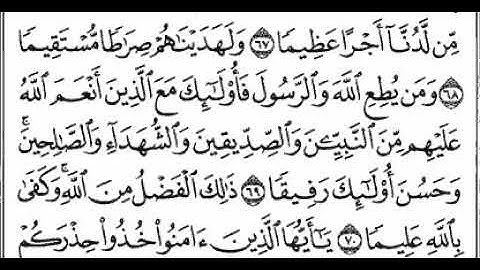 مِّن لَّدُنَّآ أَجْرًا عَظِيمًا ٦٧ وَلَهَدَيْنَٰهُمْ صِرَٰطًا مُّسْتَقِيمًا
٦٨ وَمَن يُطِعِ ٱللَّهَ وَٱلرَّسُولَ فَأُو۟لَٰٓئِكَ مَعَ ٱلَّذِينَ أَنْعَمَ ٱللَّهُ
عَلَيْهِم مِّنَ ٱلنَّبِيِّـۧنَ وَٱلصِّدِّيقِينَ وَٱلشُّهَدَآءِ وَٱلصَّٰلِحِينَ ۚ
وَحَسُنَ أُو۟لَٰٓئِكَ رَفِيقًا ٦٩ ذَٰلِكَ ٱلْفَضْلُ مِنَ ٱللَّهِ ۚ وَكَفَىٰ
بِٱللَّهِ عَلِيمًا ٧٠ يَٰٓأَيُّهَا ٱلَّذِينَ ءَامَنُوا۟ خُذُوا۟ حِذْرَكُمْ